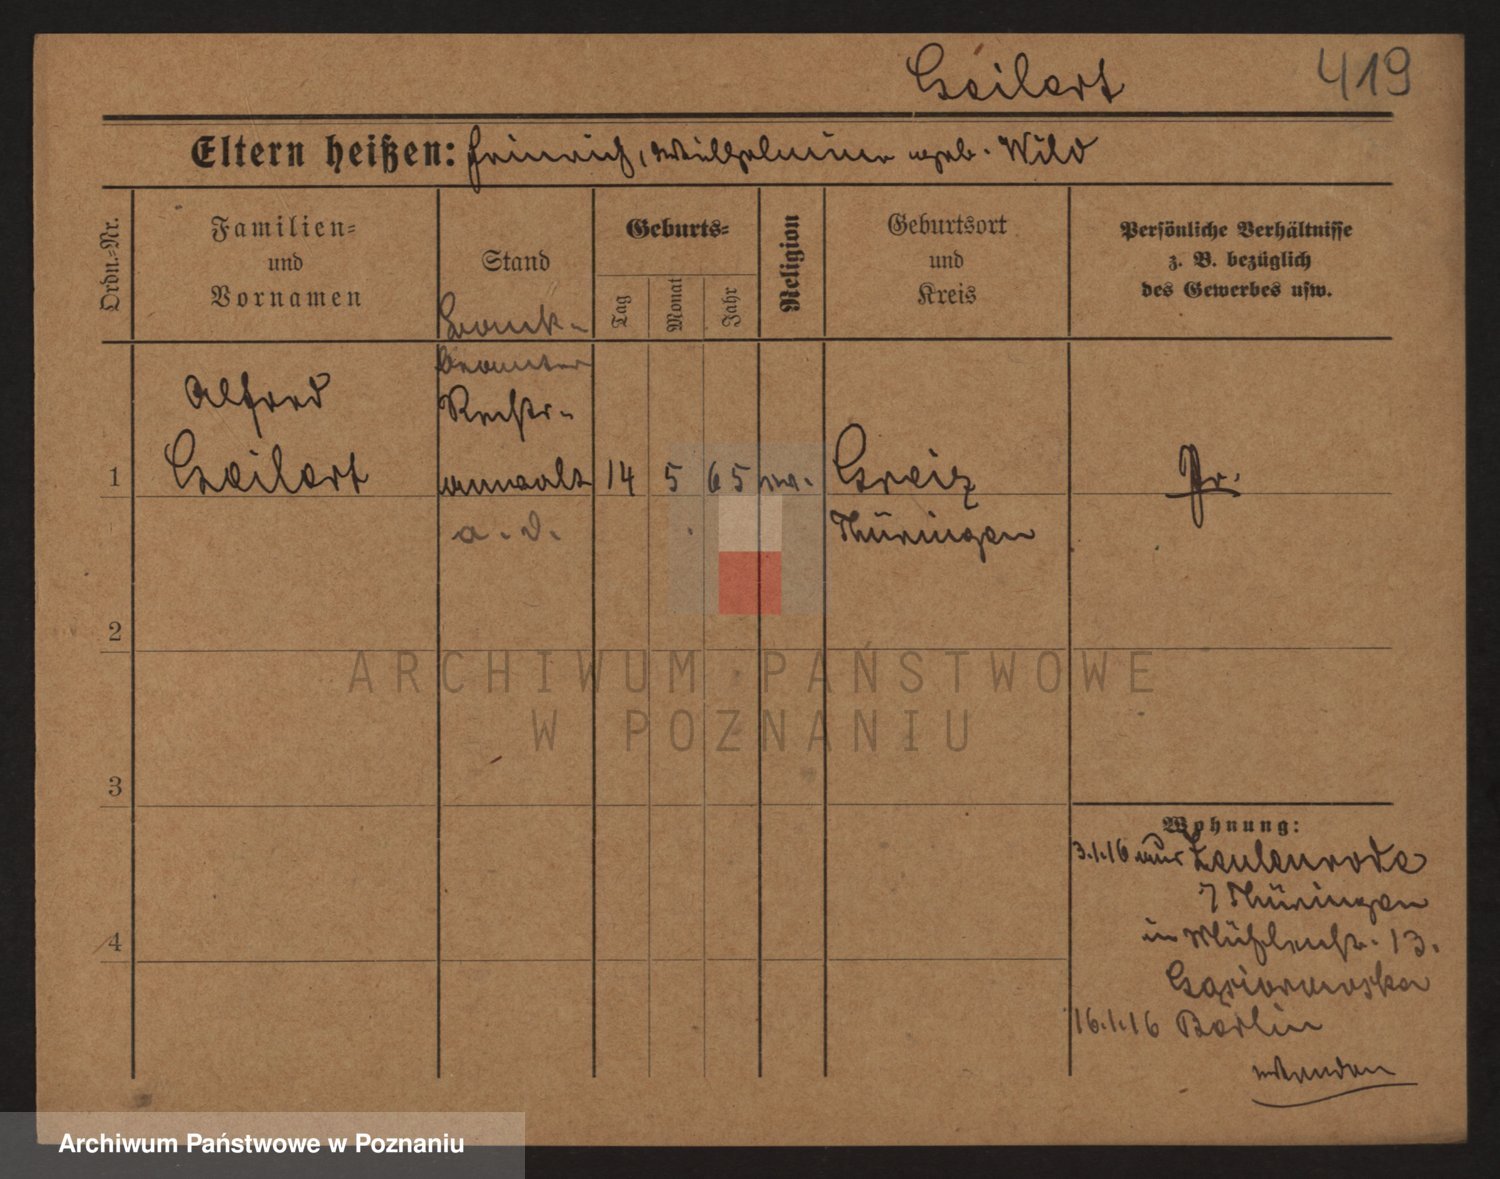 Geilert 419
Eltern heißen: Heinrich, Wilhelmine geb. Wild
Ordn.-Nr.
Familien-
und
Vornamen
Stand
Geburts-
Tag
Monat
Jahr
Religion
Geburtsort
und
Kreis
Persönliche Verhältnisse
z. B. bezüglich
des Gewerbes usw.
Bank-
beamter
Alfred Rechts-
1 Geilert anwalt 14 5 65 Greiz Pr.
a. D. Thüringen
2
ARCHIWUM PAŃSTWOWE
W POZNANIU
3
Wohnung:
3.1.16 aus Zeulenroda
Thüringen
in Mühlenstr. 13.
4
16.1.16 Berlin
wenden
Archiwum Państwowe w Poznaniu